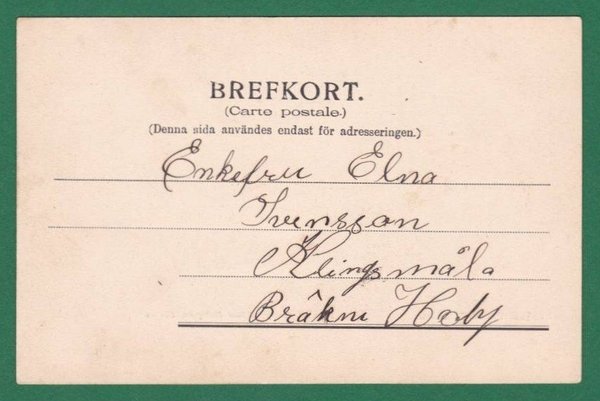 BREFKORT.
(Carte postale.)
(Denna sida användes endast för adresseringen.)
Enkefru Elna
Svensson
Klingsmåla
Bräkne Hoby